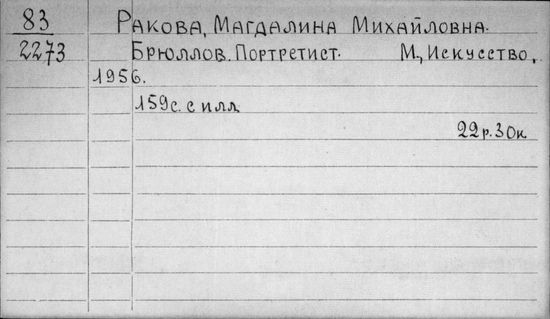 83
2273
Ракова, Магдалина Михайловна.
Брюллов. Портретист. М., Искусство,
1956.
159с. с илл.
22р.30к